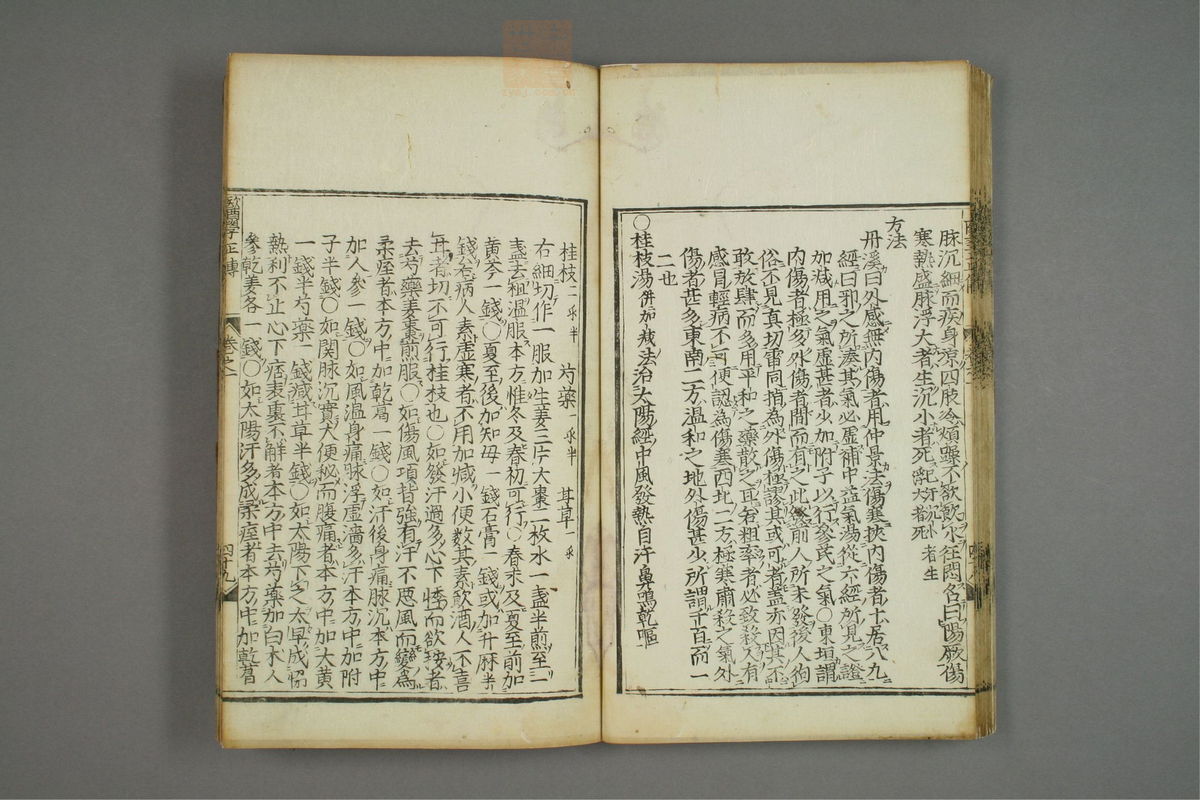 脉沉細而疾身凉四肢冷煩躁不欲飲水狂悶名曰陽厥傷
寒熱盛脉浮大者生沉小者死
方法
丹溪曰外感無内傷者用仲景法傷寒挾内傷者十居八九
經曰邪之所湊其氣必虚補中益氣湯從六經所見之證
加減用之氣虚甚者少加附子以行參茋之氣〇東垣謂
内傷者極多外傷者間而有之此發前人所未發後人徇
俗不見真切雷同指為外傷極謬其或可者蓋亦因其不
敢放肆而多用平和之藥散之耳若粗率者必致殺人有
感冒輕病不可便認為傷寒西北二方極寒肅殺之氣外
傷者甚多東南二方温和之地外傷甚少所謂千百而一
二也
〇桂枝湯併加减法治太陽經中風發熱自汗鼻鳴乾嘔
桂枝二戔半 芍藥一戔半 甘草一戔
右細切作一服加生姜三片大棗二枚水一盞半煎至一
盞去柤温服本方惟冬及春初可行〇春末及夏至前加
黄芩一錢〇夏至後加知母一錢石膏一錢或加升麻半
錢若病人素虚寒者不用加减小便数其素飲酒人不喜
甘者切不可行桂枝也〇如發汗過多心下悸而欲按者
去芍藥姜棗煎服〇如傷風項背強有汗不惡風而變為
柔痓者本方中加乾葛一錢〇如汗後身痛脉沉本方中
加人參一錢〇如風温身痛脉浮虚濇多汗本方中加附
子半錢〇如関脉沉實大便秘而腹痛者本方中加大黄
一錢半芍藥一錢减甘草半錢〇如太陽下之太早成恊
熱利不止心下痞表裏不解者本方中去芍藥加白术人
參乾姜各一錢〇如太陽汗多成柔痓者本方中加乾葛
醫學正傳 卷之二 四十九